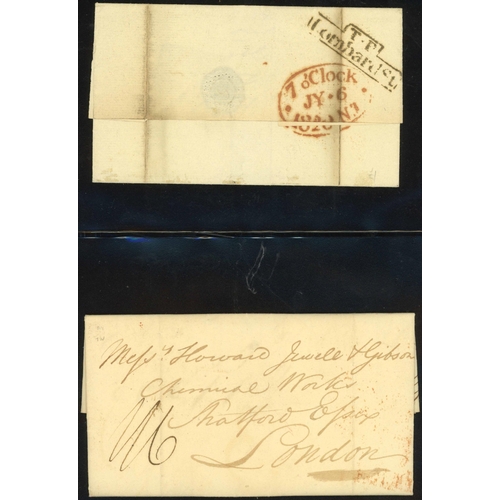 T.P
Lombard St.
7 oClock
JY·6
NT
Messrs Howard Jewell & Gibson
Chemical Works
Stratford Essex
London